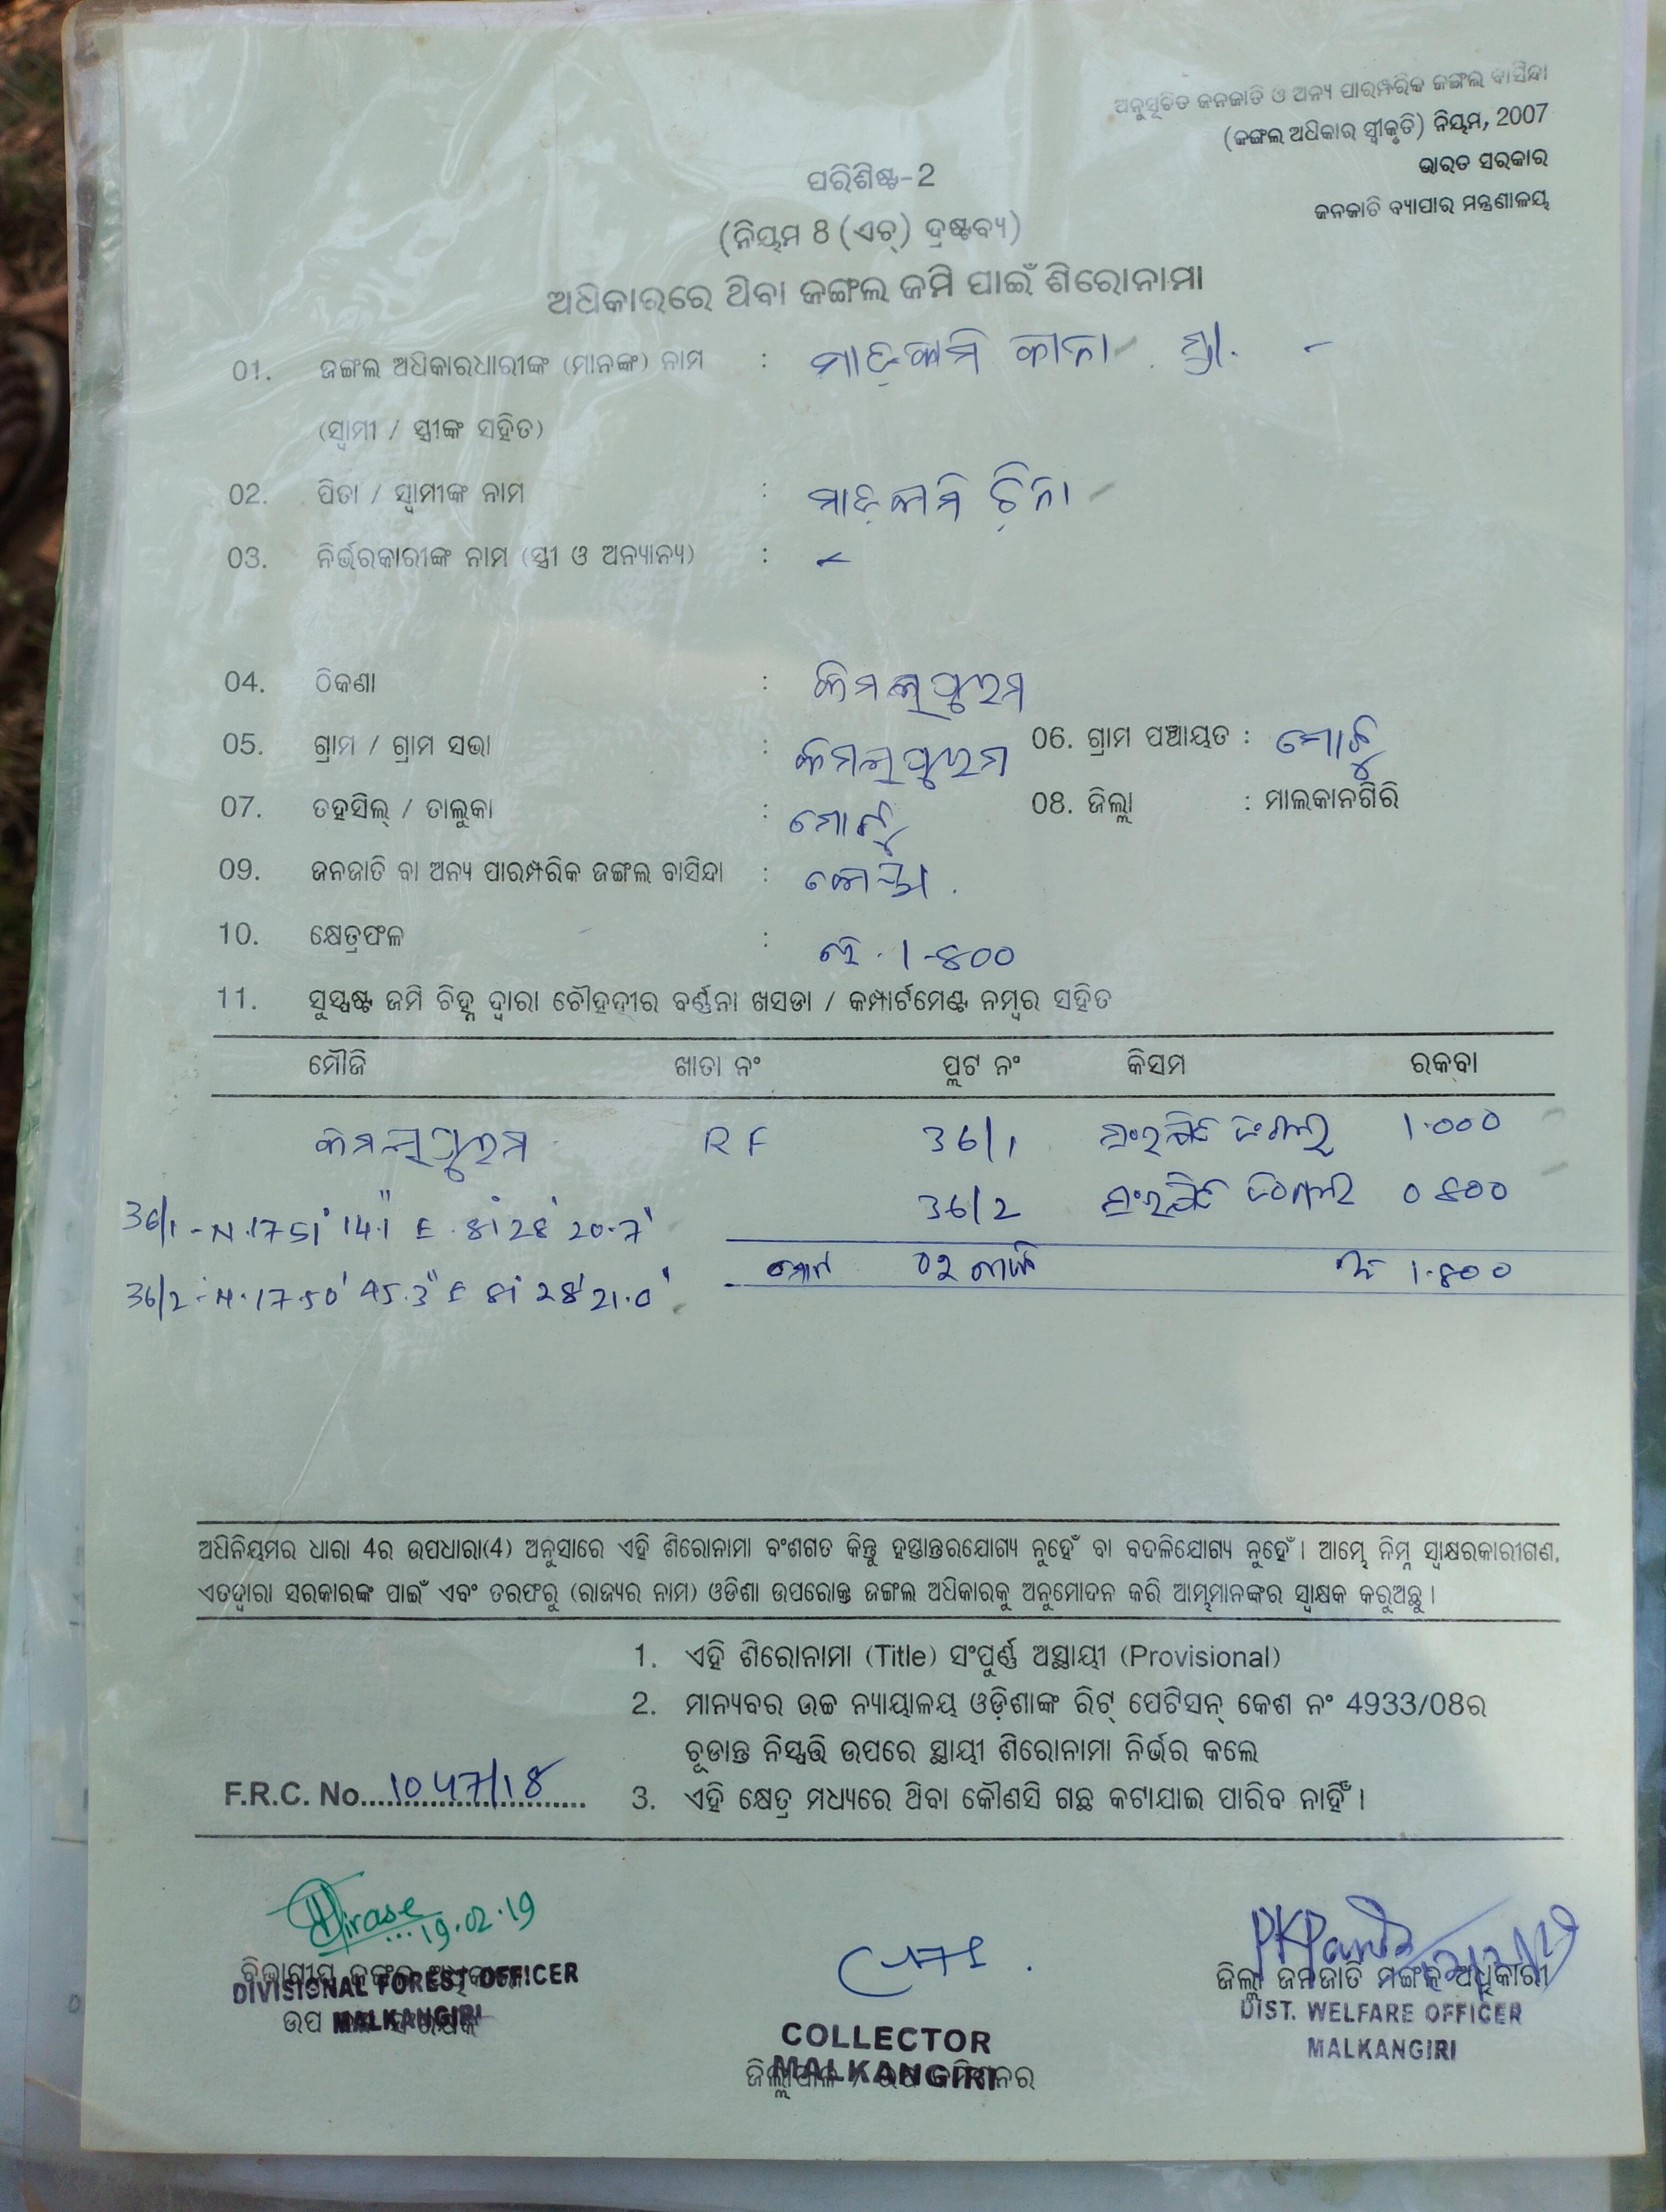 ଅନୁସୂଚିତ ଜନଜାତି ଓ ଅନ୍ୟ ପାରମ୍ପରିକ ଜଙ୍ଗଲ ବାସିନ୍ଦା
(ଜଙ୍ଗଲ ଅଧିକାର ସ୍ୱୀକୃତି) ନିୟମ, 2007
ଭାରତ ସରକାର
ଜନଜାତି ବ୍ୟାପାର ମନ୍ତ୍ରଣାଳୟ
ପରିଶିଷ୍ଟ-2
(ନିୟମ 8 (ଏଚ୍) ଦ୍ରଷ୍ଟବ୍ୟ)
ଅଧିକାରରେ ଥିବା ଜଙ୍ଗଲ ଜମି ପାଇଁ ଶିରୋନାମା
01. ଜଙ୍ଗଲ ଅଧିକାରଧାରୀଙ୍କ (ମାନଙ୍କ) ନାମ : ମାଡ଼କାମି
(ସ୍ୱାମୀ / ସ୍ତ୍ରୀଙ୍କ ସହିତ)
02. ପିତା / ସ୍ୱାମୀଙ୍କ ନାମ : ମାଡ଼କାମି
03. ନିର୍ଭରକାରୀଙ୍କ ନାମ (ସ୍ତ୍ରୀ ଓ ଅନ୍ୟାନ୍ୟ) : -
04. ଠିକଣା :
05. ଗ୍ରାମ / ଗ୍ରାମ ସଭା : 06. ଗ୍ରାମ ପଞ୍ଚାୟତ : ମୋଟୁ
07. ତହସିଲ୍ / ତାଲୁକା : ମୋଟୁ 08. ଜିଲ୍ଲା : ମାଲକାନଗିରି
09. ଜନଜାତି ବା ଅନ୍ୟ ପାରମ୍ପରିକ ଜଙ୍ଗଲ ବାସିନ୍ଦା : କୋୟା
10. କ୍ଷେତ୍ରଫଳ : ହେ. 1-800
11. ସୁସ୍ପଷ୍ଟ ଜମି ଚିହ୍ନ ଦ୍ୱାରା ଚୌହଦ୍ଦୀର ବର୍ଣ୍ଣନା ଖସଡା / କମ୍ପାର୍ଟମେଣ୍ଟ ନମ୍ବର ସହିତ
ମୌଜି ଖାତା ନଂ ପ୍ଲଟ ନଂ କିସମ ରକବା
RF 36/1 ସଂରକ୍ଷିତ ଜଂଗଲ 1.000
36/1 - N.17 51' 14.1" E. 81° 28' 20.7"
36/2 ସଂରକ୍ଷିତ ଜଂଗଲ 0 800
ମୋଟ 02 1.800
36/2 - N.17.50' 45.3" E 81° 28' 21.0"
ଅଧିନିୟମର ଧାରା 4ର ଉପଧାରା(4) ଅନୁସାରେ ଏହି ଶିରୋନାମା ବଂଶଗତ କିନ୍ତୁ ହସ୍ତାନ୍ତରଯୋଗ୍ୟ ନୁହେଁ ବା ବଦଳିଯୋଗ୍ୟ ନୁହେଁ । ଆମ୍ଭେ ନିମ୍ନ ସ୍ୱାକ୍ଷରକାରୀଗଣ,
ଏତଦ୍ୱାରା ସରକାରଙ୍କ ପାଇଁ ଏବଂ ତରଫରୁ (ରାଜ୍ୟର ନାମ) ଓଡିଶା ଉପରୋକ୍ତ ଜଙ୍ଗଲ ଅଧିକାରକୁ ଅନୁମୋଦନ କରି ଆମ୍ଭମାନଙ୍କର ସ୍ୱାକ୍ଷକ କରୁଅଛୁ ।
1. ଏହି ଶିରୋନାମା (Title) ସଂପୂର୍ଣ୍ଣ ଅସ୍ଥାୟୀ (Provisional)
2. ମାନ୍ୟବର ଉଚ୍ଚ ନ୍ୟାୟାଳୟ ଓଡ଼ିଶାଙ୍କ ରିଟ୍ ପେଟିସନ୍ କେଶ ନଂ 4933/08ର
ଚୂଡାନ୍ତ ନିସ୍ପତ୍ତି ଉପରେ ସ୍ଥାୟୀ ଶିରୋନାମା ନିର୍ଭର କଲେ
F.R.C. No. 1047/18
3. ଏହି କ୍ଷେତ୍ର ମଧ୍ୟରେ ଥିବା କୌଣସି ଗଛ କଟାଯାଇ ପାରିବ ନାହିଁ ।
19.02.19
ଜିଲ୍ଲା ଜନଜାତି ମଙ୍ଗଳ ଅଧିକାରୀ
DIVISIONAL FOREST OFFICER
MALKANGIRI
DIST. WELFARE OFFICER
MALKANGIRI
COLLECTOR
MALKANGIRI